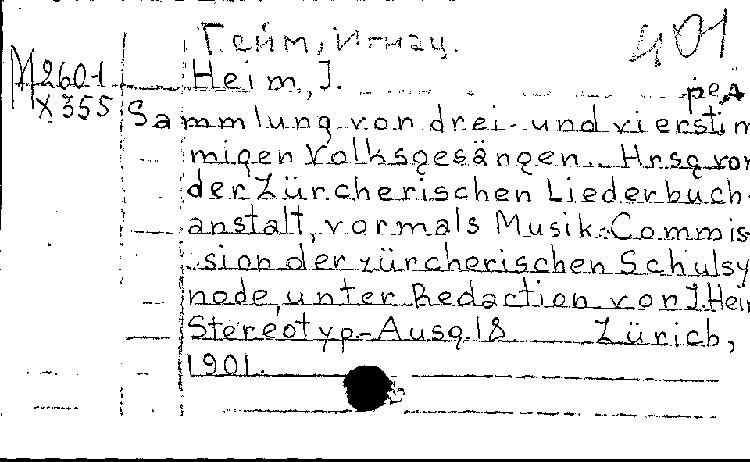 Гейм, Игнац.
401
M2601 Heim, J.
ред
X355 Sammlung von drei- und vierstim
migen Volksgesängen. Hrsg von
der Zürcherischen Liederbuch-
anstalt, vormals Musik-Commis-
sion der zürcherischen Schulsy
node, unter Redaction von J. Heim
Stereotyp-Ausg 18 Zürich,
1901.